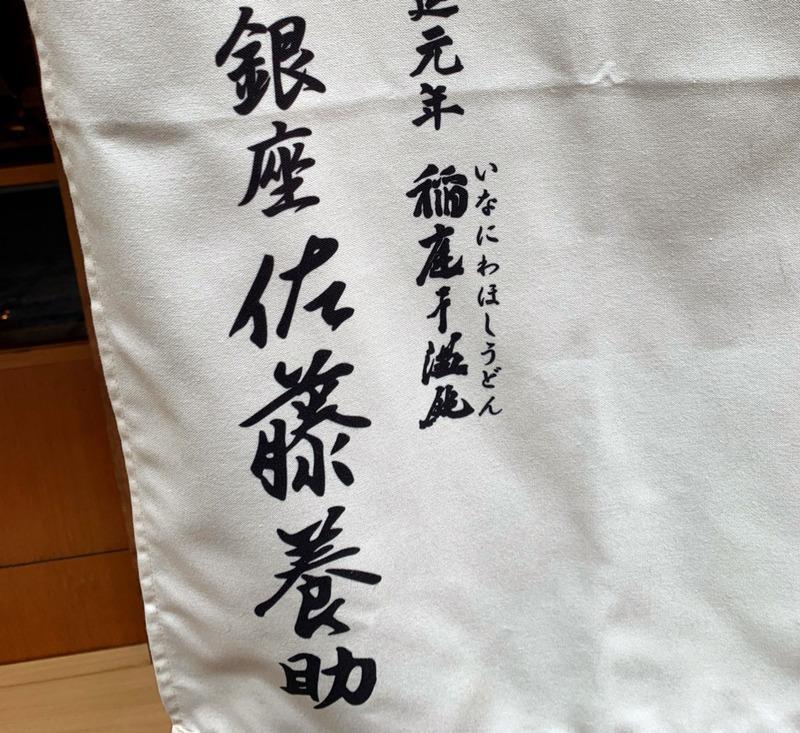 いなにわほしうどん
延元年 稲庭干温飩
銀座 佐藤養助